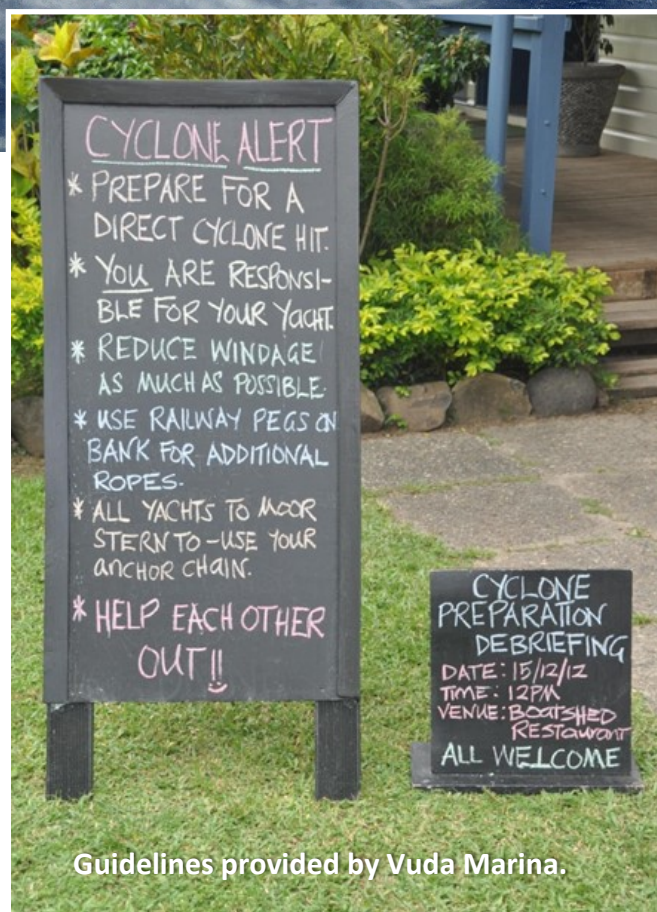 CYCLONE ALERT
* PREPARE FOR A
DIRECT CYCLONE HIT.
* YOU ARE RESPONSI-
BLE FOR YOUR YACHT.
* REDUCE WINDAGE
AS MUCH AS POSSIBLE.
* USE RAILWAY PEGS ON
BANK FOR ADDITIONAL
ROPES.
* ALL YACHTS TO MOOR
STERN TO - USE YOUR
ANCHOR CHAIN.
* HELP EACH OTHER
OUT!!
CYCLONE
PREPARATION
DEBRIEFING
DATE: 15/12/12
TIME: 12PM
VENUE: BOATSHED
RESTAURANT
ALL WELCOME
Guidelines provided by Vuda Marina.